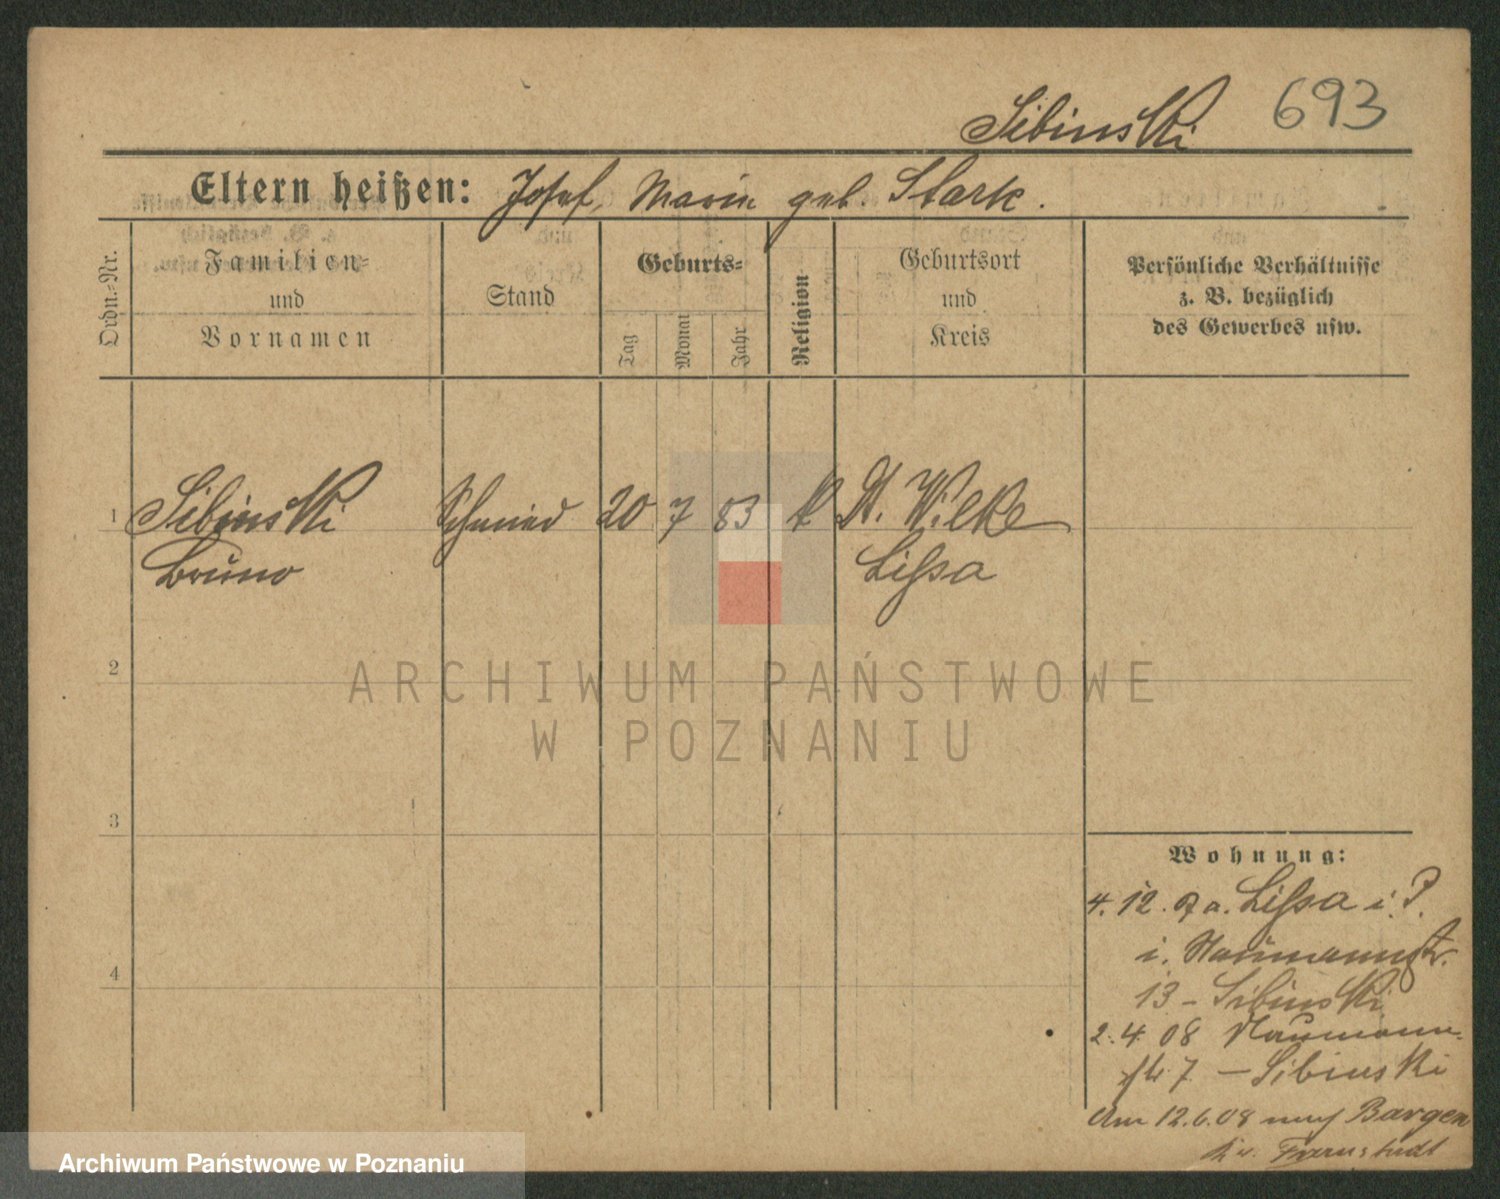 Sibinski 693
Eltern heißen: Josef, Marie geb. Stark.
Ordn.-Nr.
Familien-
und
Vornamen
Stand
Geburts-
Tag
Monat
Jahr
Religion
Geburtsort
und
Kreis
Persönliche Verhältnisse
z. B. bezüglich
des Gewerbes usw.
1 Sibinski Schmied 20 7 83 k Dt. Wilke
Bruno Lissa
2
ARCHIWUM PAŃSTWOWE
W POZNANIU
3
4
Wohnung:
4. 12. 07 a. Lissa i. P.
i. Naumannstr.
13 - Sibinski
2. 4. 08 Naumann-
str 7 - Sibinski
Am 12.6.08 nach Bargen
Kr. Fraustadt
Archiwum Państwowe w Poznaniu